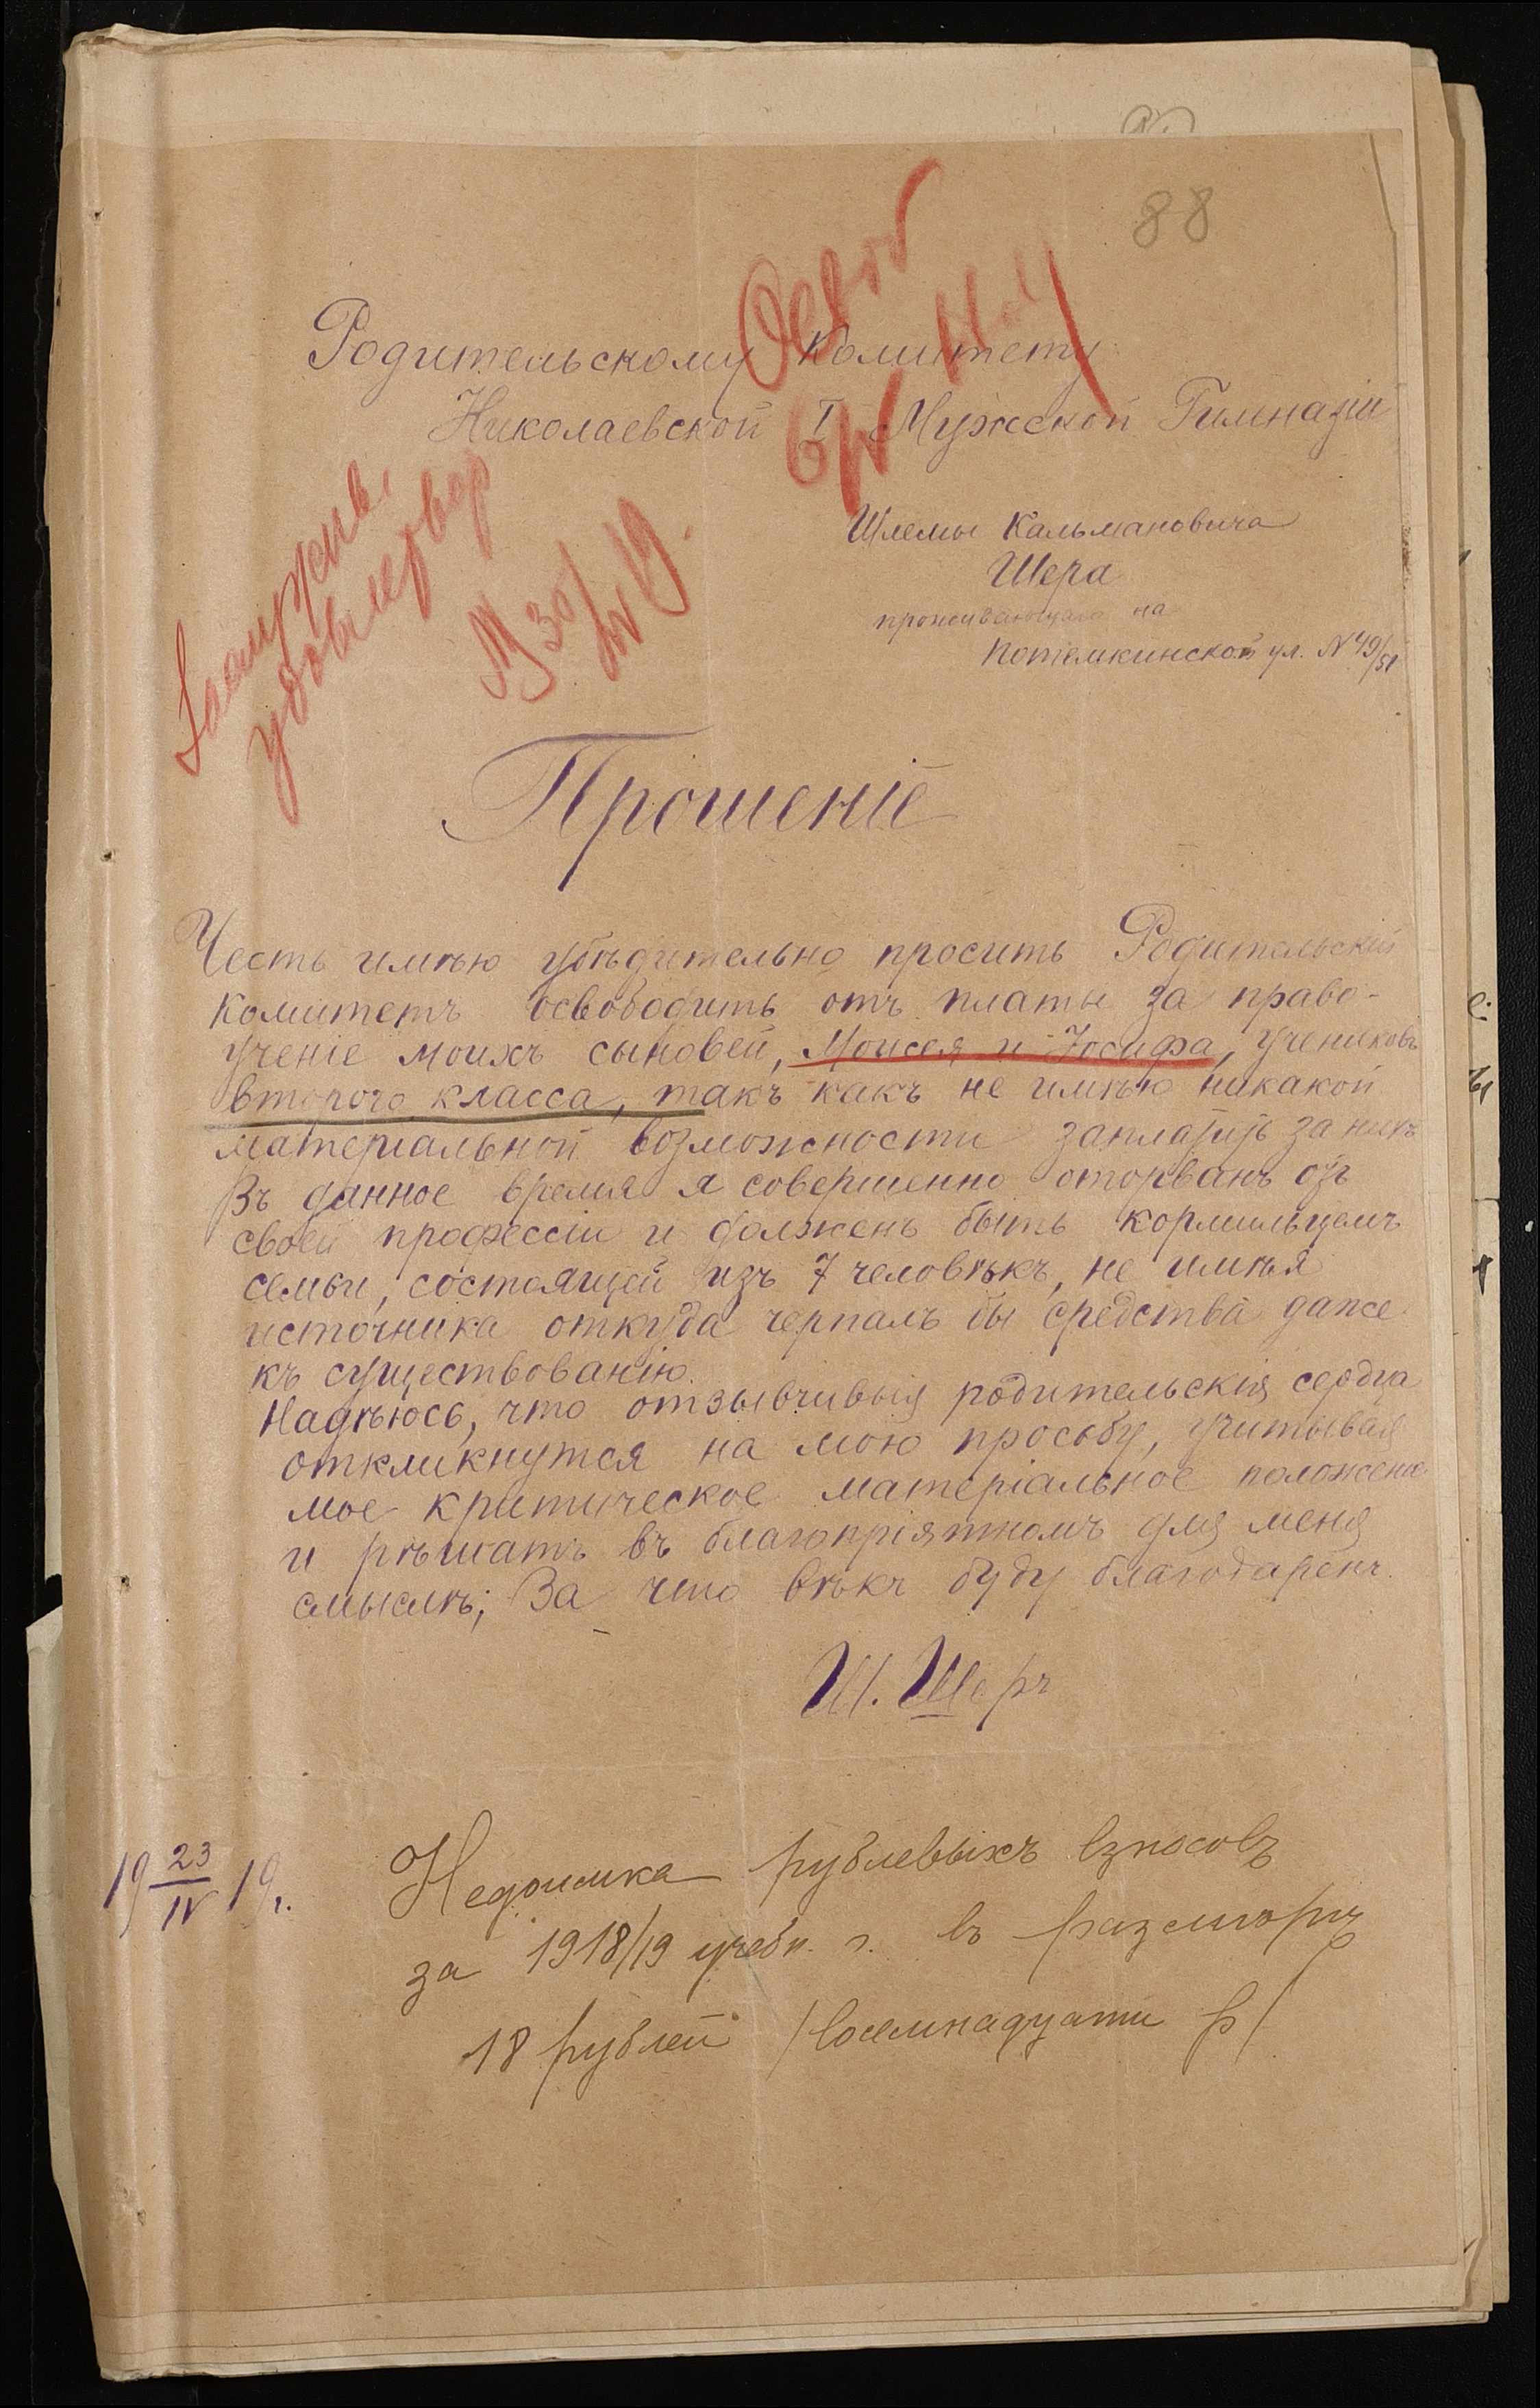 88
Родительскому Комитету
Николаевской I Мужской Гимназіи
Шлемы Кальмановича
Шера
проживающаго на
Потемкинской ул. N 49/51
Прошеніе
Честь имѣю убѣдительно просить Родительскій
Комитетъ освободить отъ платы за право-
ученіе моихъ сыновей, Моисея и Іосифа, учениковъ
второго класса, такъ какъ не имѣю никакой
матеріальной возможности заплатить за нихъ
Въ данное время я совершенно оторванъ отъ
своей профессіи и долженъ быть кормильцемъ
семьи, состоящей изъ 7 человѣкъ, не имѣя
источника откуда черпалъ бы средства даже
къ существованію.
Надѣюсь, что отзывчивыя родительскія сердца
откликнутся на мою просьбу, учитывая
мое критическое матеріальное положеніе
и рѣшатъ въ благопріятномъ для меня
смыслѣ; За что вѣкъ буду благодаренъ.
Ш. Шеръ
19 23/IV 19 г.
Недоимка рублевыхъ взносовъ
за 1918/19 учебн. г. въ размѣрѣ
18 рублей /восемнадцати р/